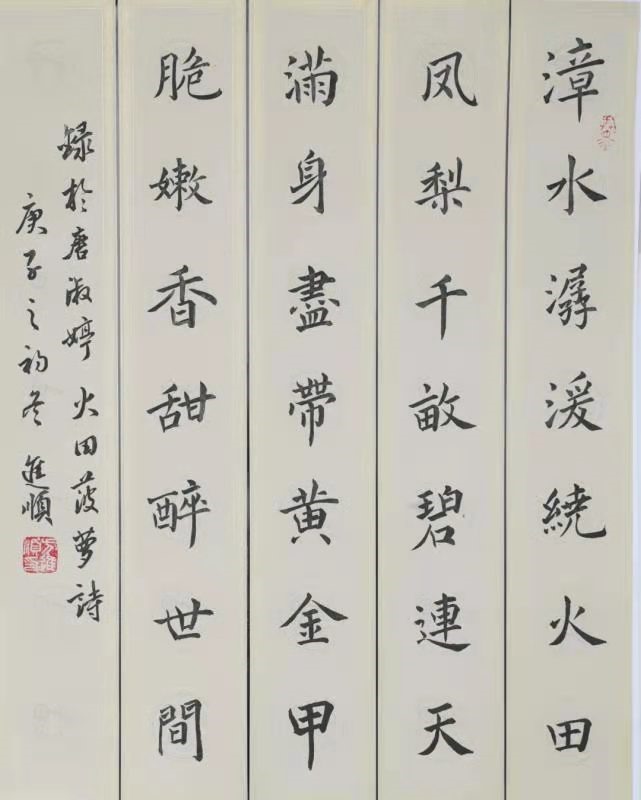 漳水潺湲繞火田
凤梨千畝碧連天
滿身盡帶黄金甲
脆嫩香甜醉世間
録於唐淑婷火田菠萝詩
庚子之初冬進順